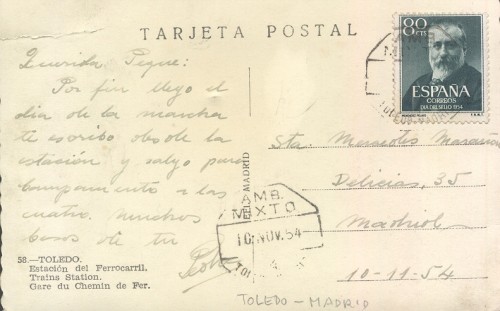 TARJETA POSTAL
Querida Peque:
Por fin llego el
dia de la marcha
te escribo desde la
estación y salgo para
campamento a las
cuatro. Muchos
besos de tu
58.—TOLEDO.
Estación del Ferrocarril.
Trains Station.
Gare du Chemin de Fer.
MADRID
80
CTS
ESPAÑA
CORREOS
DIA DEL SELLO 1954
Sta. Mercedes
Delicias, 35
Madrid
10-11-54
AMB.
MIXTO
10 NOV. 54
TOLEDO - MADRID